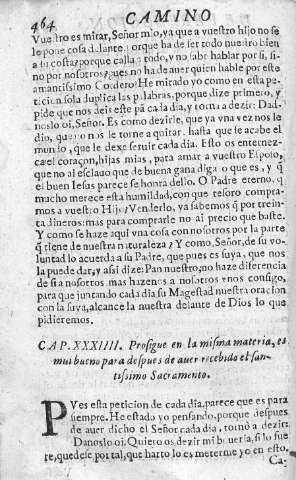 464 CAMINO
Vuestro es mirar, Señor mio, ya que a vuestro hijo no se
le pone cosa delante: porque ha de ser todo nuestro bien
a su costa? porque calla a todo, y no sabe hablar por si, si-
no por nosotros? pues no ha de auer quien hable por este
amantissimo Cordero? He mirado yo como en esta pe-
ticion sola duplica las palabras, porque dize primero, y
pide que nos deis este pã cada dia, y torna a dezir: Dad-
noslo oi, Señor. Es como dezirle, que ya vna vez nos le
dio, que no nos le torne a quitar, hasta que se acabe el
mundo, que le dexe seruir cada dia. Esto os enternez-
ca el coraçon, hijas mias, para amar a vuestro Esposo,
que no ai esclauo que de buena gana diga q̃ que es, y q̃
el buen Iesus parece se honra dello. O Padre eterno, q̃
mucho merece esta humildad, con que tesoro compra-
mos a vuestro Hijo? Venderlo, ya sabemos q̃ por trein-
ta dineros: mas para comprarle no ai precio que baste.
Y como se haze aqui vna cosa con nosotros por la parte
q̃ tiene de nuestra naturaleza? Y como, Señor, de su vo-
luntad lo acuerda a su Padre, que pues es suya, que nos
la puede dar, y assi dize: Pan nuestro, no haze diferencia
de si a nosotros mas hazenos a nosotros vnos consigo,
para que juntando cada dia su Magestad nuestra oracion
con la suya, alcance la nuestra delante de Dios lo que
pidieremos.
CAP. XXXIIII. Prosigue en la misma materia, es
mui bueno para despues de auer recebido el san-
tissimo Sacramento.
PVes esta peticion de cada dia, parece que es para
siempre. He estado yo pensando, porque despues
de auer dicho el Señor cada dia, tornò a dezir:
Danoslo oi. Quiero os dezir mi boueria, si lo fue
re, quedese por tal, que harto lo es meterme yo en esto.
Ca-